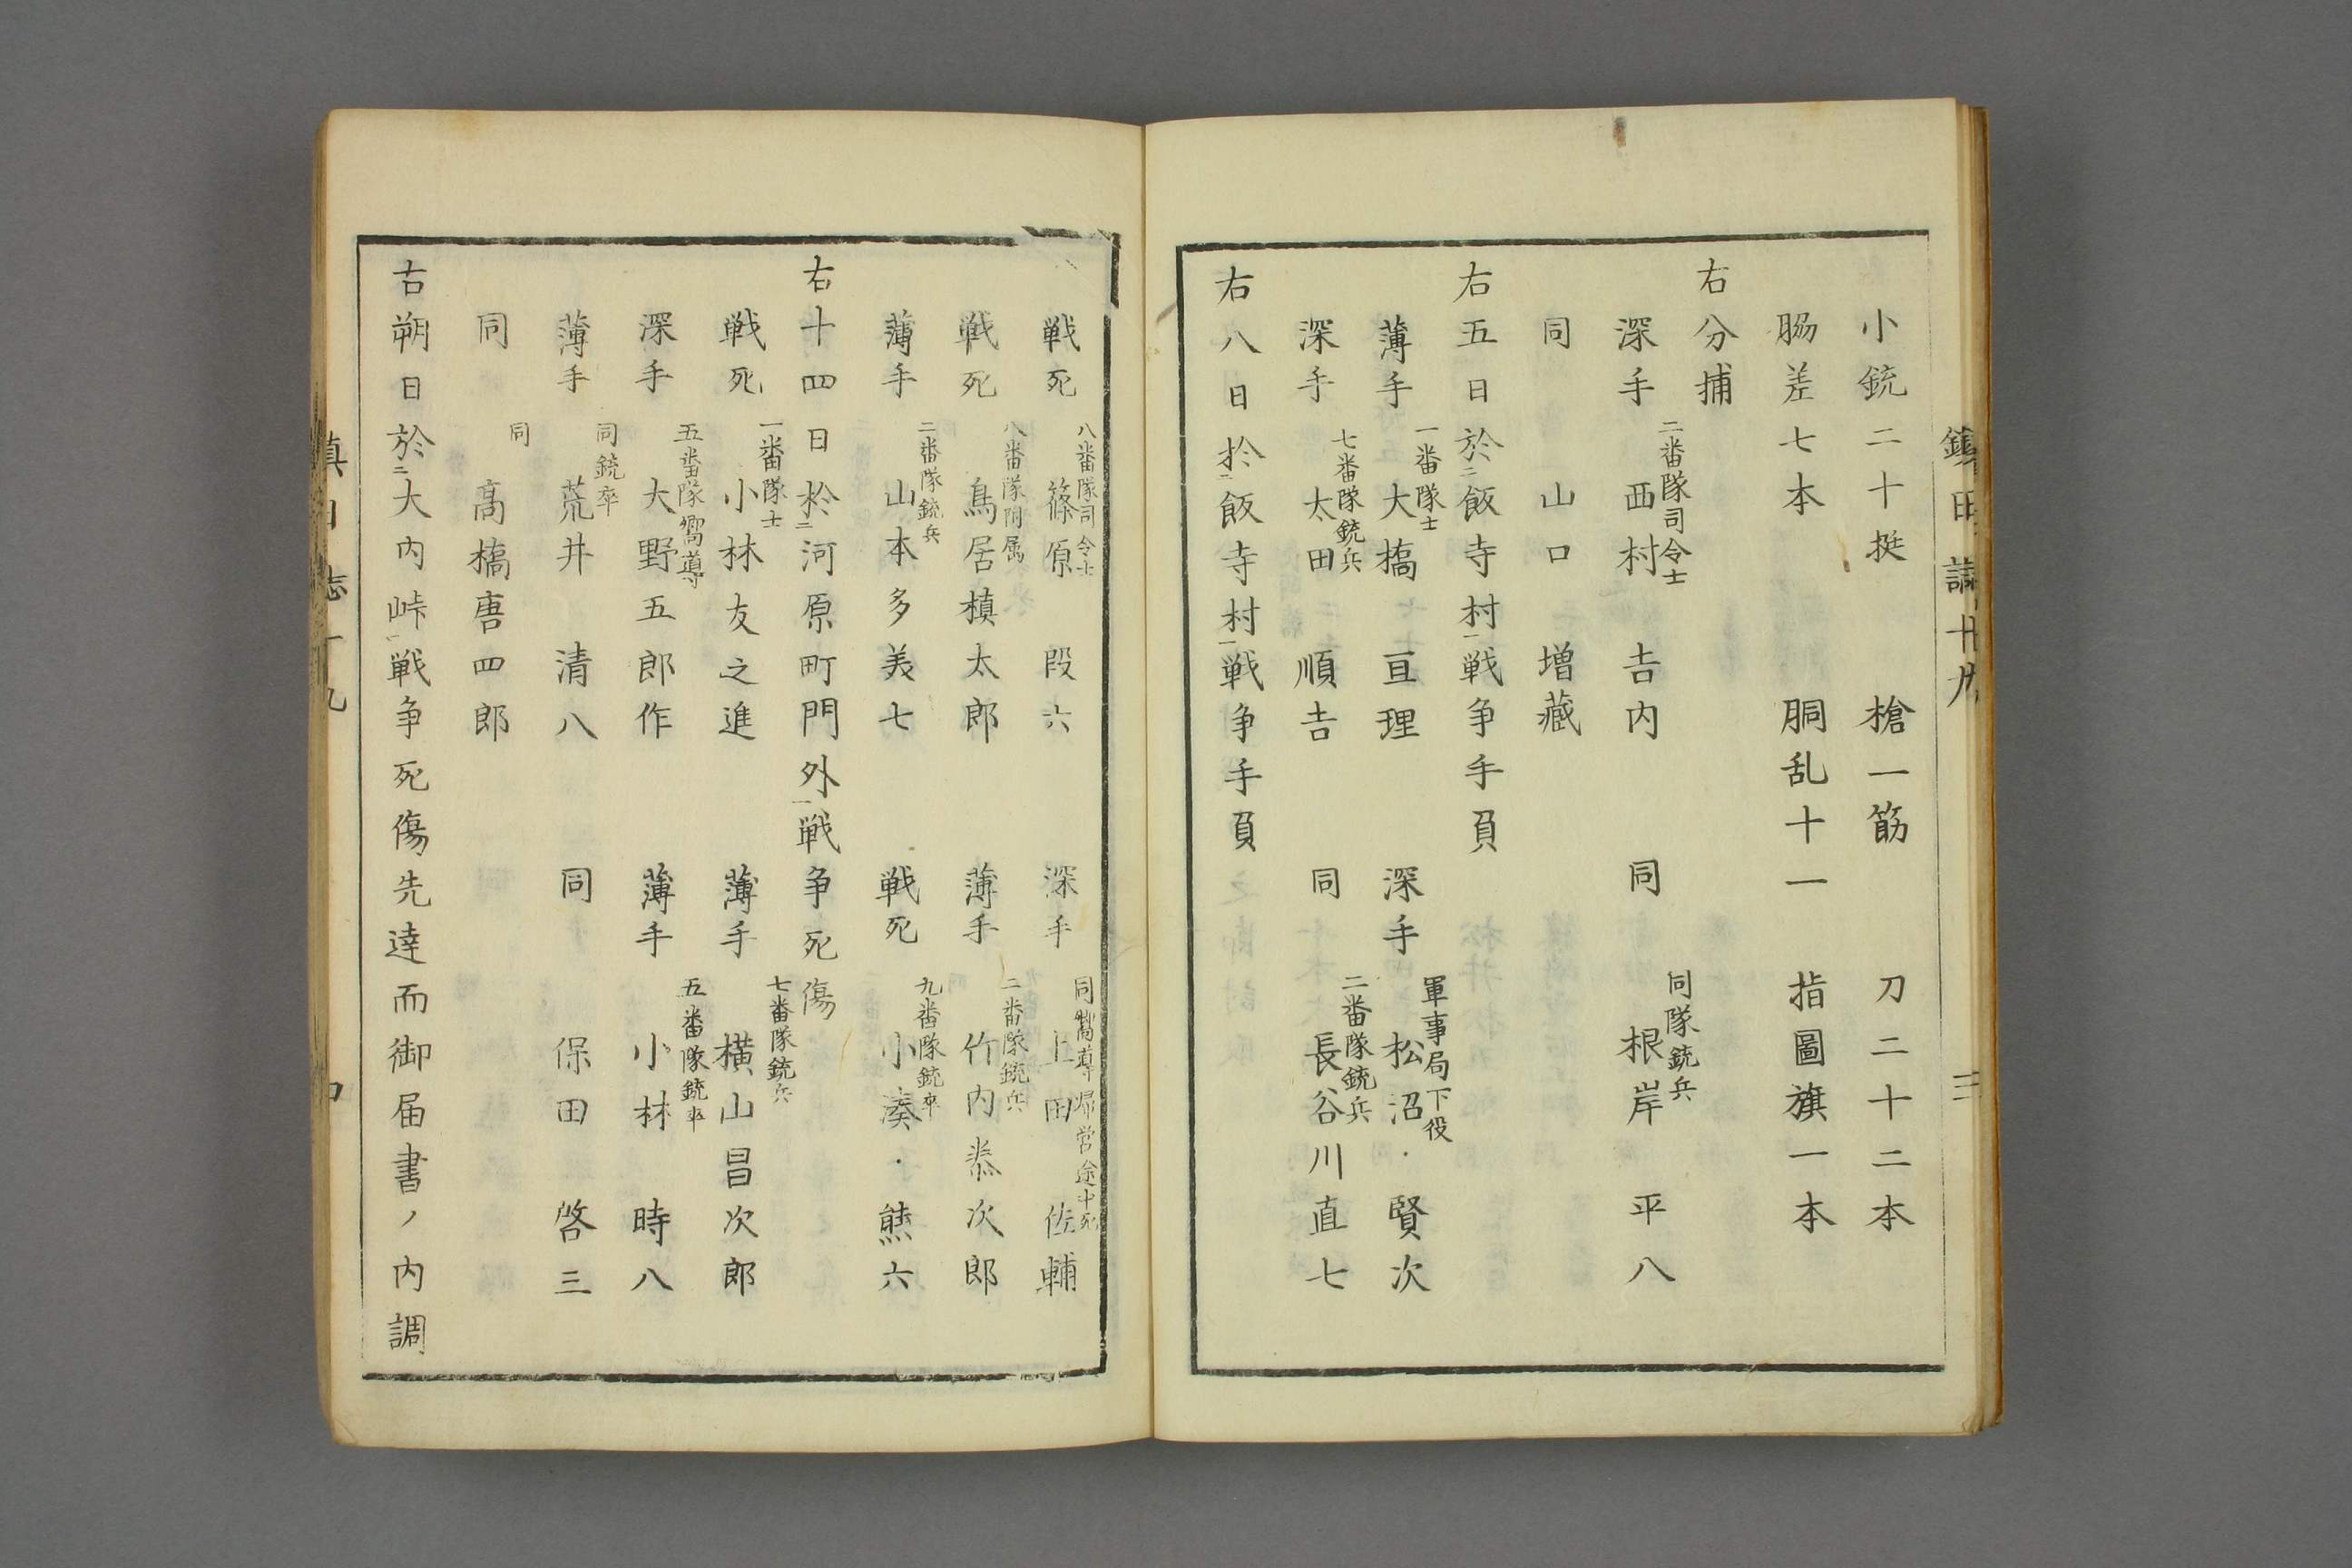 鎮日誌廿九 三
小銃二十挺 槍一筋 刀二十二本
脇差七本 胴乱十一 指圖旗一本
右分捕
深手 二番隊司令士 西村吉内 同 同隊銃兵 根岸平八
同 山口増藏
右五日於二飯寺村一戦争手負
薄手 一番隊士 大橋亘理 深手 軍事局下役 松沼賢次
深手 七番隊銃兵 太田順吉 同 二番隊銃兵 長谷川直七
右八日於二飯寺村一戦争手負
戦死 八番隊司令士 篠原段六 深手 同嚮導帰営途中死 上田佐輔
戦死 八番隊附属 鳥居槙太郎 薄手 二番隊銃兵 竹内恭次郎
薄手 二番隊銃兵 山本多美七 戦死 九番隊銃卒 小湊熊六
右十四日於二河原町門外一戦争死傷
戦死 一番隊士 小林友之進 薄手 七番隊銃兵 横山昌次郎
深手 五番隊嚮導 大野五郎作 薄手 五番隊銃卒 小林時八
薄手 同銃卒 荒井清八 同 保田啓三
同 同 高橋唐四郎
右朔日於二大内峠一戦争死傷先達而御届書ノ内調